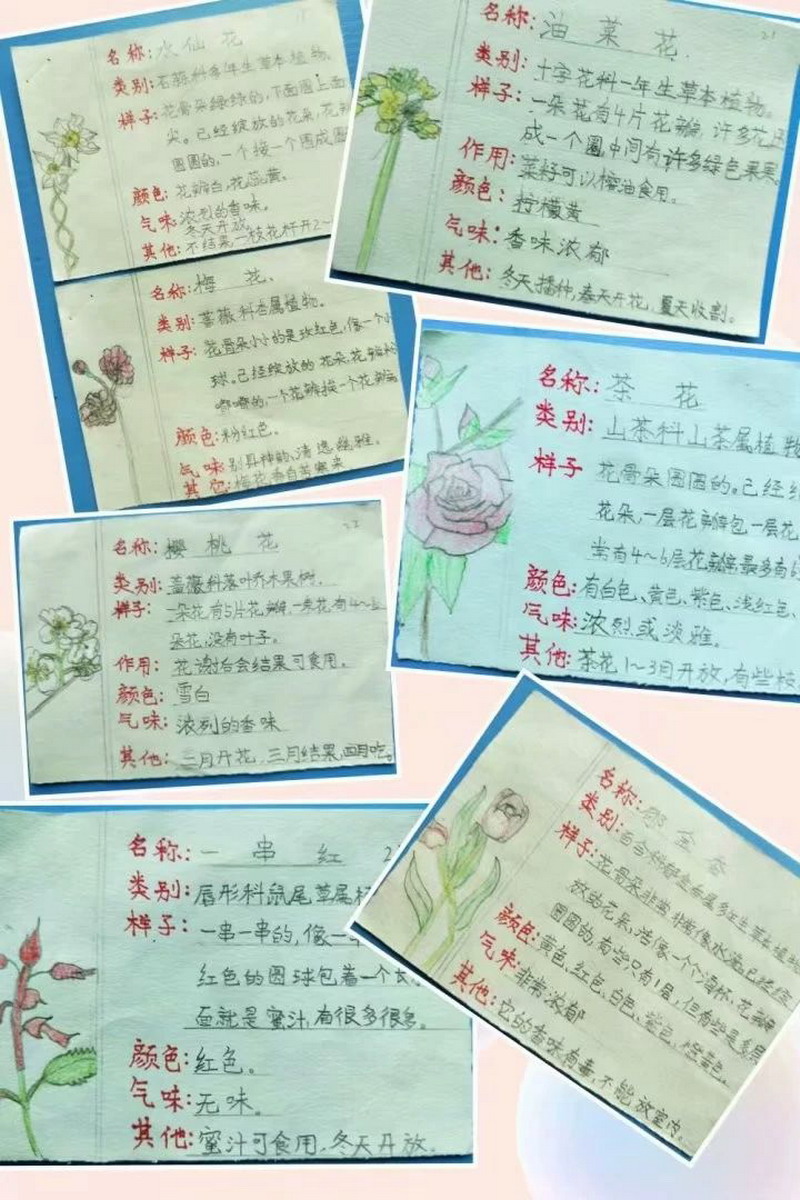 名称: 水仙花
类别: 石蒜科多年生草本植物。
样子: 花骨朵绿绿的,下面圆上面
尖。已经绽放的花朵,花瓣
圆圆的,一个接一个围成圆
颜色: 花瓣白,花蕊黄。
气味: 浓烈的香味。
冬天开放。
其他: 不结果 一枝花杆开2~
名称: 油菜花
类别: 十字花科一年生草本植物。
样子: 一朵花有4片花瓣,许多花还
成一个圆,中间有许多绿色果果
作用: 菜籽可以榨油食用。
颜色: 柠檬黄
气味: 香味浓郁
其他: 冬天播种,春天开花,夏天收割。
名称: 梅花、
类别: 蔷薇科杏属植物。
样子: 花骨朵小小的是玫红色,像一个小
球。已经绽放的花朵,花瓣粉
嘟嘟的,一个花瓣挨一个花瓣
颜色: 粉红色。
气味: 别具神韵、清逸幽雅。
其它: 梅花香自苦寒来
名称: 茶花
类别: 山茶科山茶属植物
样子 花骨朵圆圆的。已经
花朵,一层花瓣包一层花
常有4~6层花瓣,最多有
颜色: 有白色、黄色、紫色、浅红色、
气味: 浓烈或淡雅。
其他: 茶花1~3月开放,有些枝
名称: 樱桃花
类别: 蔷薇科落叶乔木果树。
样子: 一朵花有5片花瓣,一束花有4~
朵花,没有叶子。
作用: 花谢后会结果可食用。
颜色: 雪白
气味: 浓列的香味
其他: 二月开花,三月结果,四月吃。
名称: 郁金香
类别: 百合科郁金香属多年生草本植物
样子: 花骨朵非常非常像水滴,已经绽
放的花朵,活像一个个酒杯,花瓣
圆圆的,有些只有1层,但有些是多层
颜色: 黄色、红色、白色、紫色、橙黄色。
气味: 非常浓郁
其他: 它的香味有毒,不能放室内。
名称: 一串红 2
类别: 唇形科鼠尾草属植
样子: 一串一串的,像一
红色的圆球包着一个长
面就是蜜汁,有很多很多。
颜色: 红色。
气味: 无味。
其他: 蜜汁可食用,冬天开放。